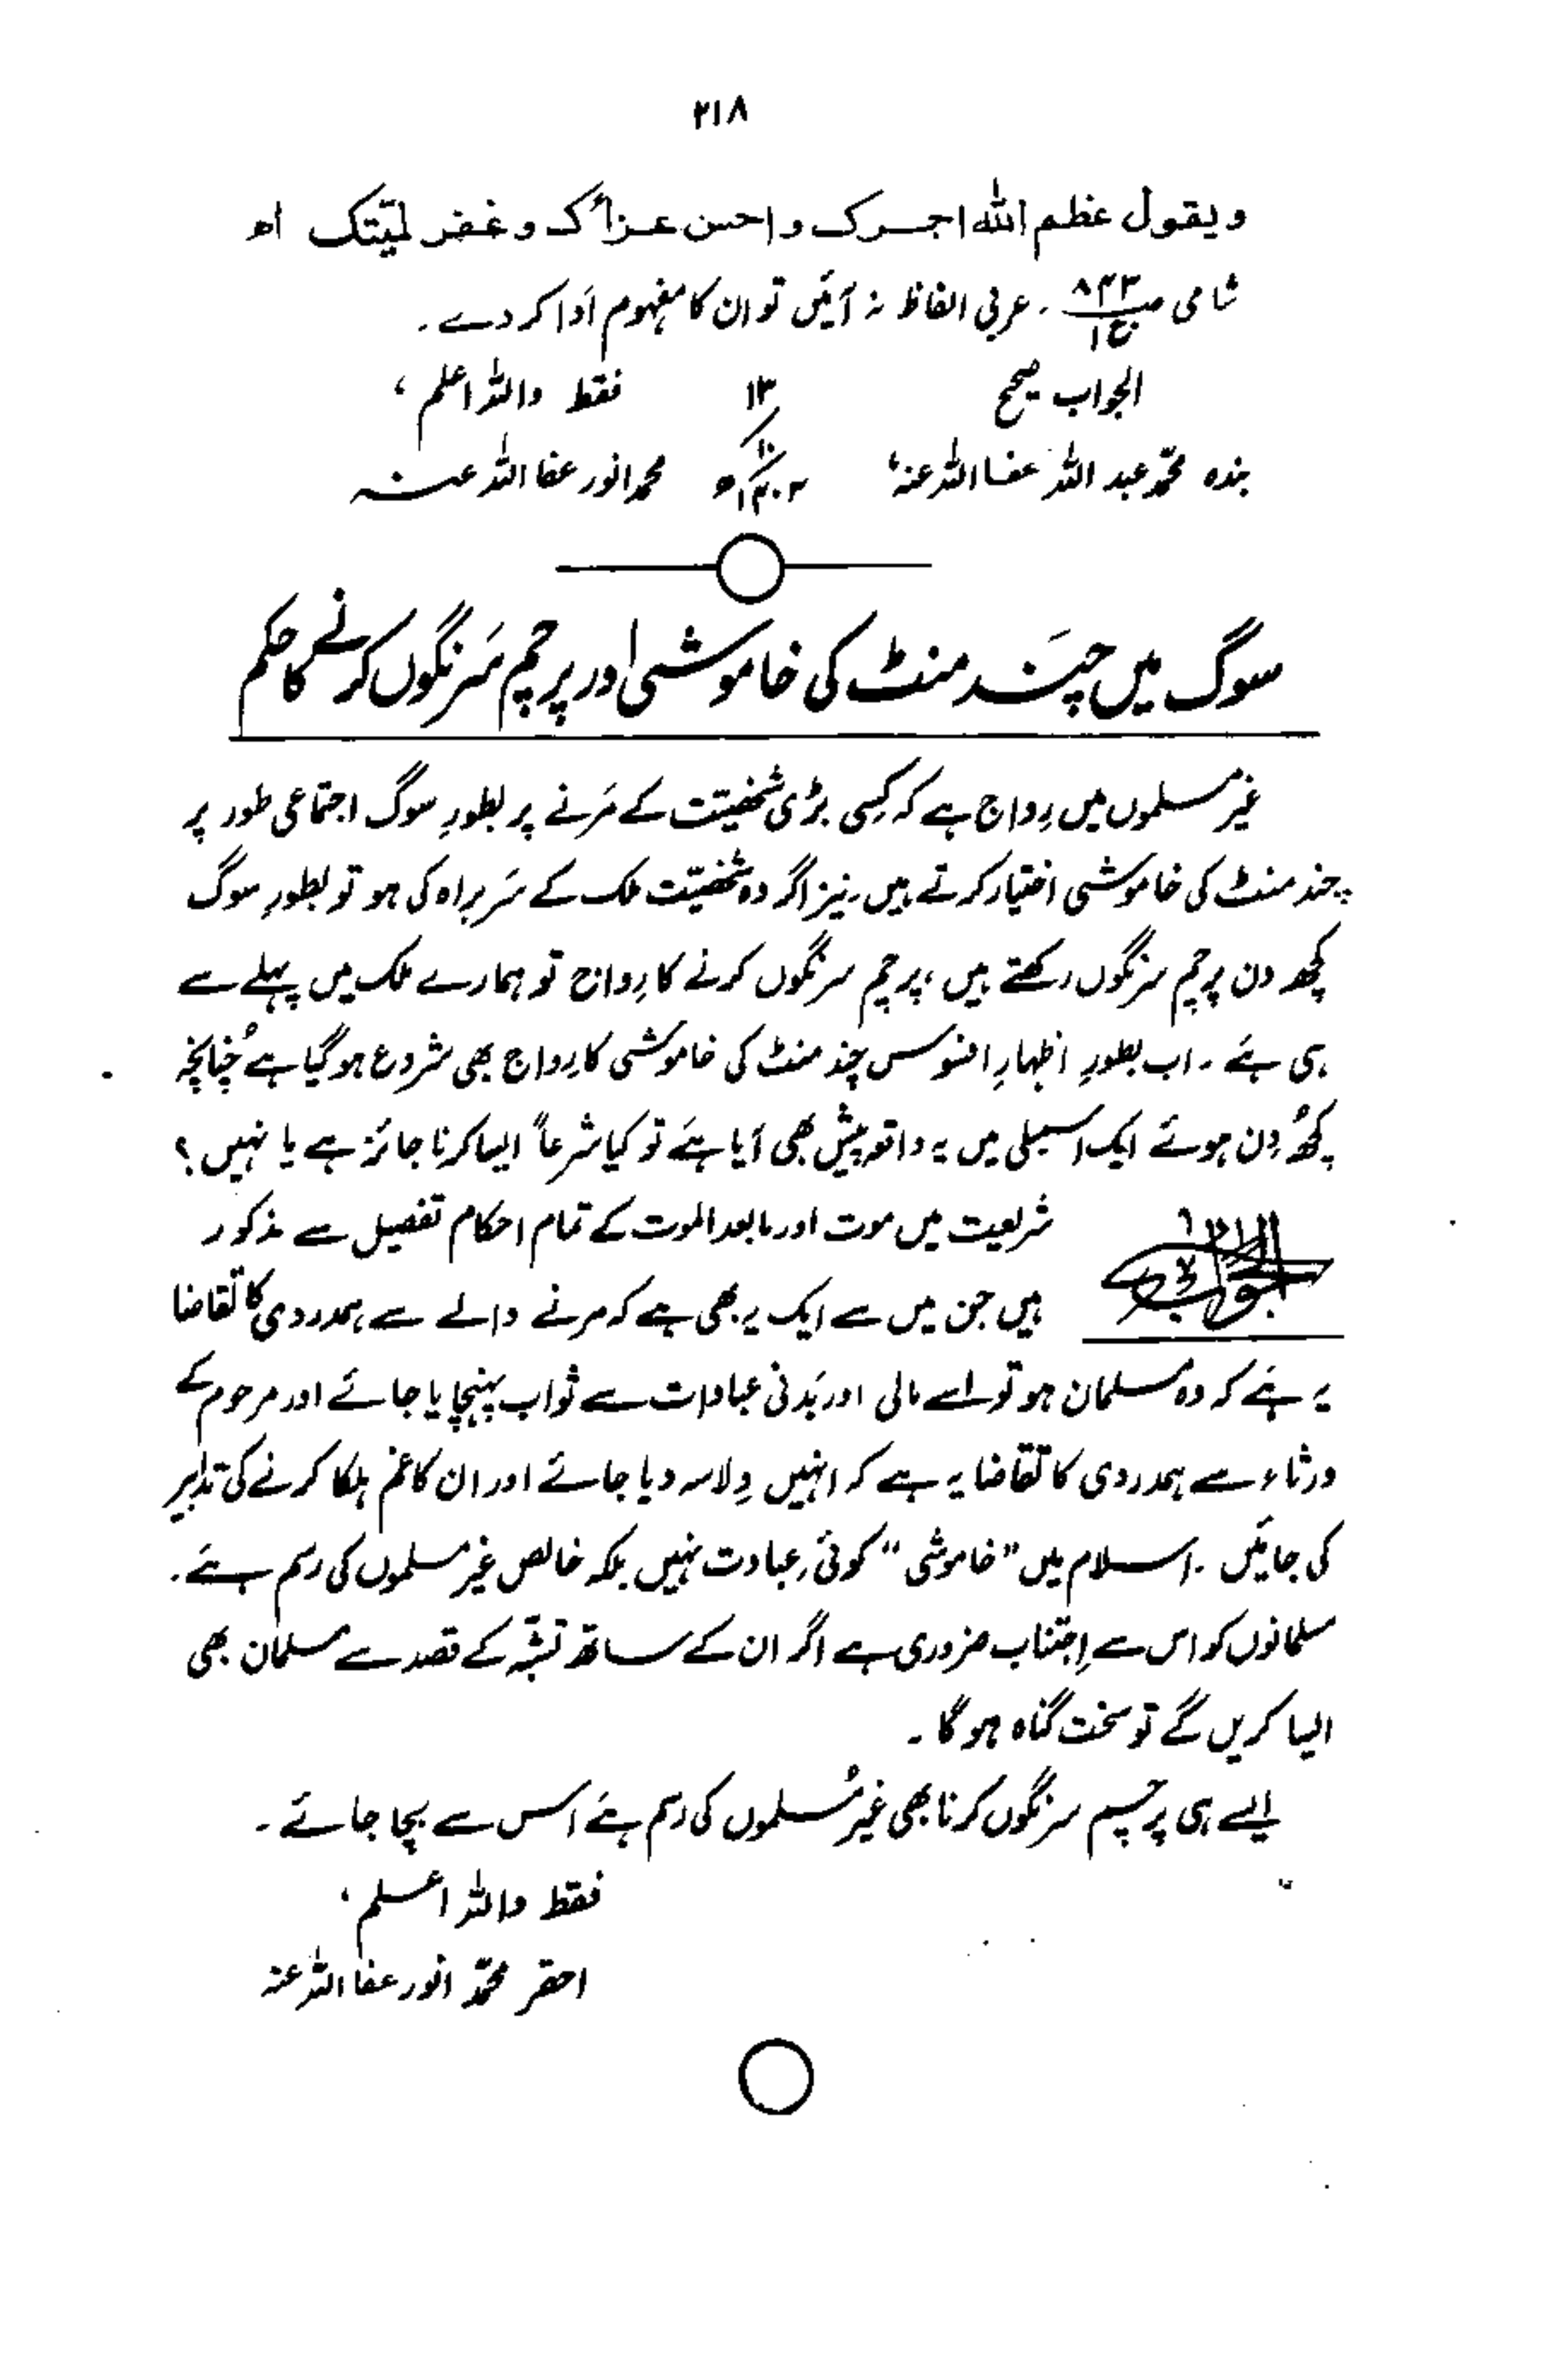 ۲۱۸
ویقول عظم اللہ اجرک واحسن عزاک وغفر لمیتک اھ
شامی صـ ۸۴۳ ج۱ ۔ عربی الفاظ نہ آئیں تو ان کا مفہوم اَدا کر دے ۔
الجواب صحیح ۱۳ فقط واللہ اعلم ،
بندہ محمّد عبد اللہ عفا اللہ عنہ، محمد انور عفا اللہ عنہ
سوگ میں چَند منٹ کی خاموشی اور پرچم سَرنگوں کرنے کا حکم
غیر مسلموں میں رِواج ہے کہ کِسی بڑی شخصیّت کے مَرنے پر بطورِ سوگ اجتماعی طور پر
چند منٹ کی خاموشی اختیار کرتے ہیں ۔ نیز اگر وہ شخصیّت ملک کے سَربراہ کی ہو تو بطورِ سوگ
کچھ دن پرچم سرنگوں رکھتے ہیں ، پرچم سرنگوں کرنے کا رِواج تو ہمارے ملک میں پہلے سے
ہی ہَے ۔ اب بطورِ اظہارِ افسوس چند منٹ کی خاموشی کا رِواج بھی شروع ہوگیا ہے چُنانچہ
کچھُ دِن ہوئے ایک اسمبلی میں یہ واقعہ پیش بھی آیا ہَے تو کیا شرعاً ایسا کرنا جائز ہے یا نہیں ؟
الجواب شریعت میں موت اور مابعد الموت کے تمام احکام تفصیل سے مذکور
ہیں جن میں سے ایک یہ بھی ہے کہ مرنے والے سے ہمدردی کا تقاضا
یہ ہَے کہ وہ مسلمان ہو تو اسے مالی اور بَدنی عبادات سے ثواب پہنچایا جائے اور مرحوم کے
ورثاء سے ہمدردی کا تقاضا یہ ہے کہ انہیں دِلاسہ دیا جائے اور ان کا غم ہلکا کرنے کی تدابیر
کی جائیں ۔ اسلام میں "خاموشی" کوئی عبادت نہیں بلکہ خالص غیر مسلموں کی رسم ہَے ۔
مسلمانوں کو اس سے اِجتناب ضروری ہے اگر ان کے ساتھ تشبّہ کے قصد سے مسلمان بھی
ایسا کریں گے تو سخت گناہ ہو گا ۔
ایسے ہی پرچم سرنگوں کرنا بھی غیر مُسلموں کی رسم ہَے اس سے بچا جائے ۔
فقط واللہ اعلم ،
احقر محمّد انور عفا اللہ عنہ